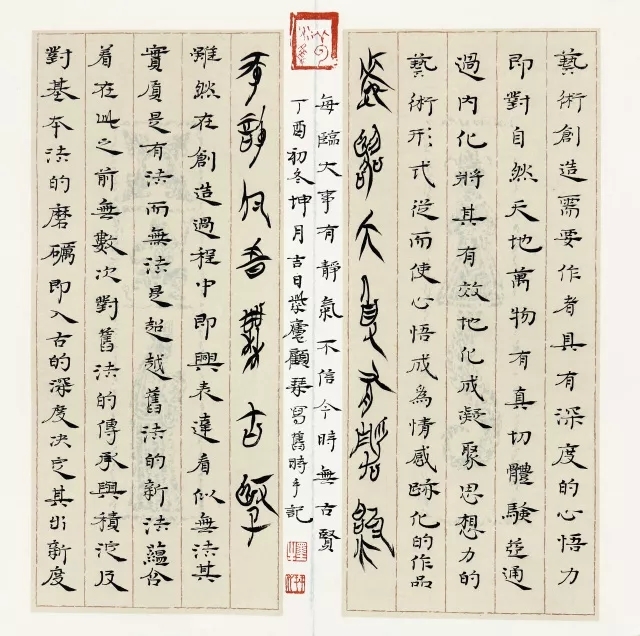 藝術創造需要作者具有深度的心悟力
即對自然天地萬物有真切體驗並通
過內化將其有效地化成凝聚思想力的
藝術形式從而使心悟成為情感跡化的作品
每臨大事有靜氣
每臨大事有靜氣不信今時無古賢
丁酉初冬坤月吉日顧琹寫舊時手記
不信今時無古賢
雖然在創造過程中即興表達看似無法其
實質是有法而無法是超越舊法的新法蘊含
着在此之前無數次對舊法的傳承與積淀及
對基本法的磨礪即入古的深度决定其出新度